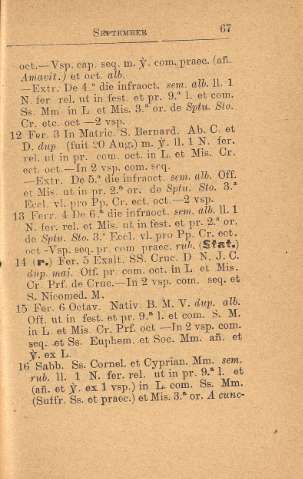 SEPTEMBER 67
oct.—Vsp. cap. seq. m. ỹ. com. praec. (afi.
Amavit.) et oct. alb.
—Extr. De 4.ª die infraoct. sem. alb. ll. 1
N. fer. rel. ut in fest. et pr. 9.ª l. et com.
Ss. Mm. in L et Mis. 3.ª or. de Sptu. Sto.
Cr. etc. oct —2 vsp.
12 Fer. 3 In Matric. S. Bernard. Ab. C. et
D. dup (fuit 20 Aug.) m. ỹ. ll. 1 N. fer.
rel. ut in pr. com. oct. in L. et Mis. Cr.
ect. oct.—In 2 vsp. com. seq.
—Extr. De 5.ª die infraoct. sem. alb. Off.
et Mis. ut in pr. 2.ª or. de Sptu. Sto. 3.ª
Eccl. vl. pro Pp. Cr. ect. oct.—2 vsp.
13 Ferr. 4 De 6.ª die infraoct. sem. alb. ll. 1
N. fer. rel. et Mis. ut in fest. et pr. 2.ª or.
de Sptu. Sto. 3.ª Eccl. vl. pro Pp. Cr. ect.
oct -Vsp. seq. pr. com. praec. rub. (Stat.)
14 (r.) Fer. 5 Exalt. SS. Cruc. D N. J. C.
dup. mai. Off. pr. com. oct. in L et Mis.
Cr. Prf. de Cruc.—In 2 vsp. com. seq. et
S. Nicomed. M.
15 Fer. 6 Octav. Nativ. B. M. V. dup. alb.
Off. ut in fest. et pr. 9.ª l. et com. S. M.
in L. et Mis. Cr. Prf. oct —In 2 vsp. com.
seq. et Ss. Euphem. et Soc. Mm. afi. et
ỹ. ex L.
16 Sabb. Ss. Cornel. et Cyprian. Mm. sem.
rub. ll. 1 N. fer. rel. ut in pr. 9.ª l. et
(afi. et ỹ. ex 1 vsp.) in L. com. Ss. Mm.
(Suffr. Ss. et praec.) et Mis. 3.ª or. A cunc-